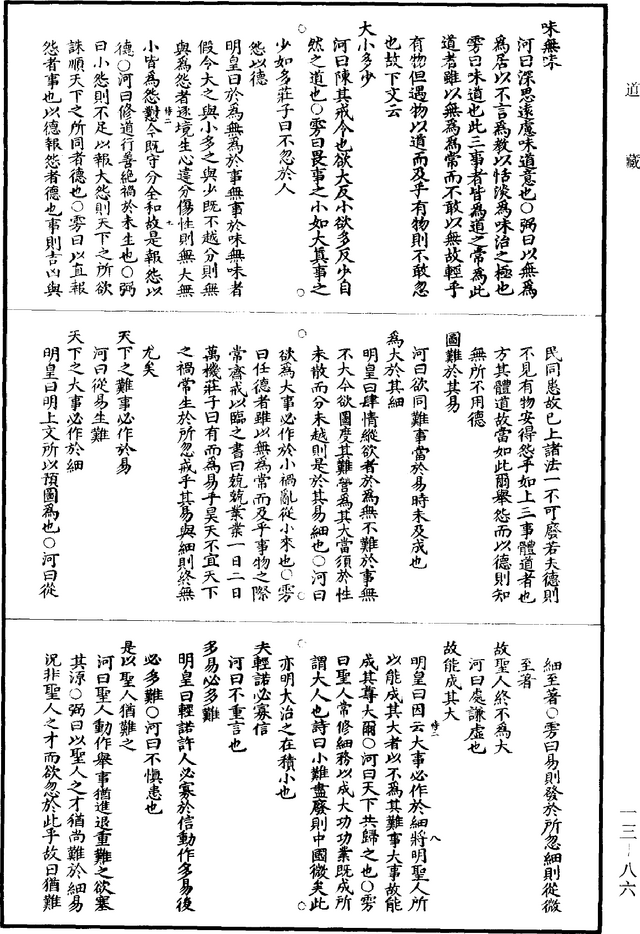 味無味
河曰深思遠慮味道意也○弼曰以無為
為居以不言為教以恬淡為味治之極也
雱曰味道也此三事者皆為道之常為此
道者雖以無為為常而不敢以無故輕乎
有物但遇物以道而及乎有物則不敢忽
也故下文云
大小多少
河曰陳其戒令也欲大反小欲多反少自
然之道也○雱曰畏事之小如大真事之
少如多莊子曰不忽於人
怨以德
明皇曰於為無為於事無事於味無味者
假令大之與小多之與少既不越分則無
與為怨者逐境生心違分傷性則無大無
小皆為怨懟今既守分全和故是報怨以
德○河曰修道行善絶禍於未生也○弼
曰小怨則不足以報大怨則天下之所欲
誅順天下之所同者德也○雱曰以直報
怨者事也以德報怨者德也事則吉凶與
民同患故已上諸法一不可廢若夫德則
不見有物安得怨乎如上三事體道者也
方其體道故當如此爾舉怨而以德則知
無所不用德
圖難於其易
河曰欲同難事當於易時未及成也
為大於其細
明皇曰肆情縱欲者於為無不難於事無
不大今欲圖度其難營為其大當須於性
未散而分未越則是於其易細也○河曰
欲為大事必作於小禍亂從小來也○雱
曰任德者雖以無為常而及乎事物之際
常齋戒以臨之書曰兢兢業業一日二日
萬機莊子曰有而為易乎昊天不宜天下
之禍常生於所忽戒乎其易與細則終無
尤矣
天下之難事必作於易
河曰從易生難
天下之大事必作於細
明皇曰明上文所以預圖為也○河曰從
細至著○雱曰易則發於所忽細則從微
至著
故聖人終不為大
河曰處謙虛也
故能成其大
明皇曰因云大事必作於細將明聖人所
以能成其大者以不為其難事大事故能
成其尊大爾○河曰天下共歸之也○雱
曰聖人常修細務以成大功功業既成所
謂大人也詩曰小難盡廢則中國微矣此
亦明大治之在積小也
夫輕諾必寡信
河曰不重言也
多易必多難
明皇曰輕諾許人必寡於信動作多易後
必多難○河曰不慎患也
是以聖人猶難之
河曰聖人動作舉事猶進退重難之欲塞
其源○弼曰以聖人之才猶尚難於細易
況非聖人之才而欲忽於此乎故曰猶難
道藏
一三-八六